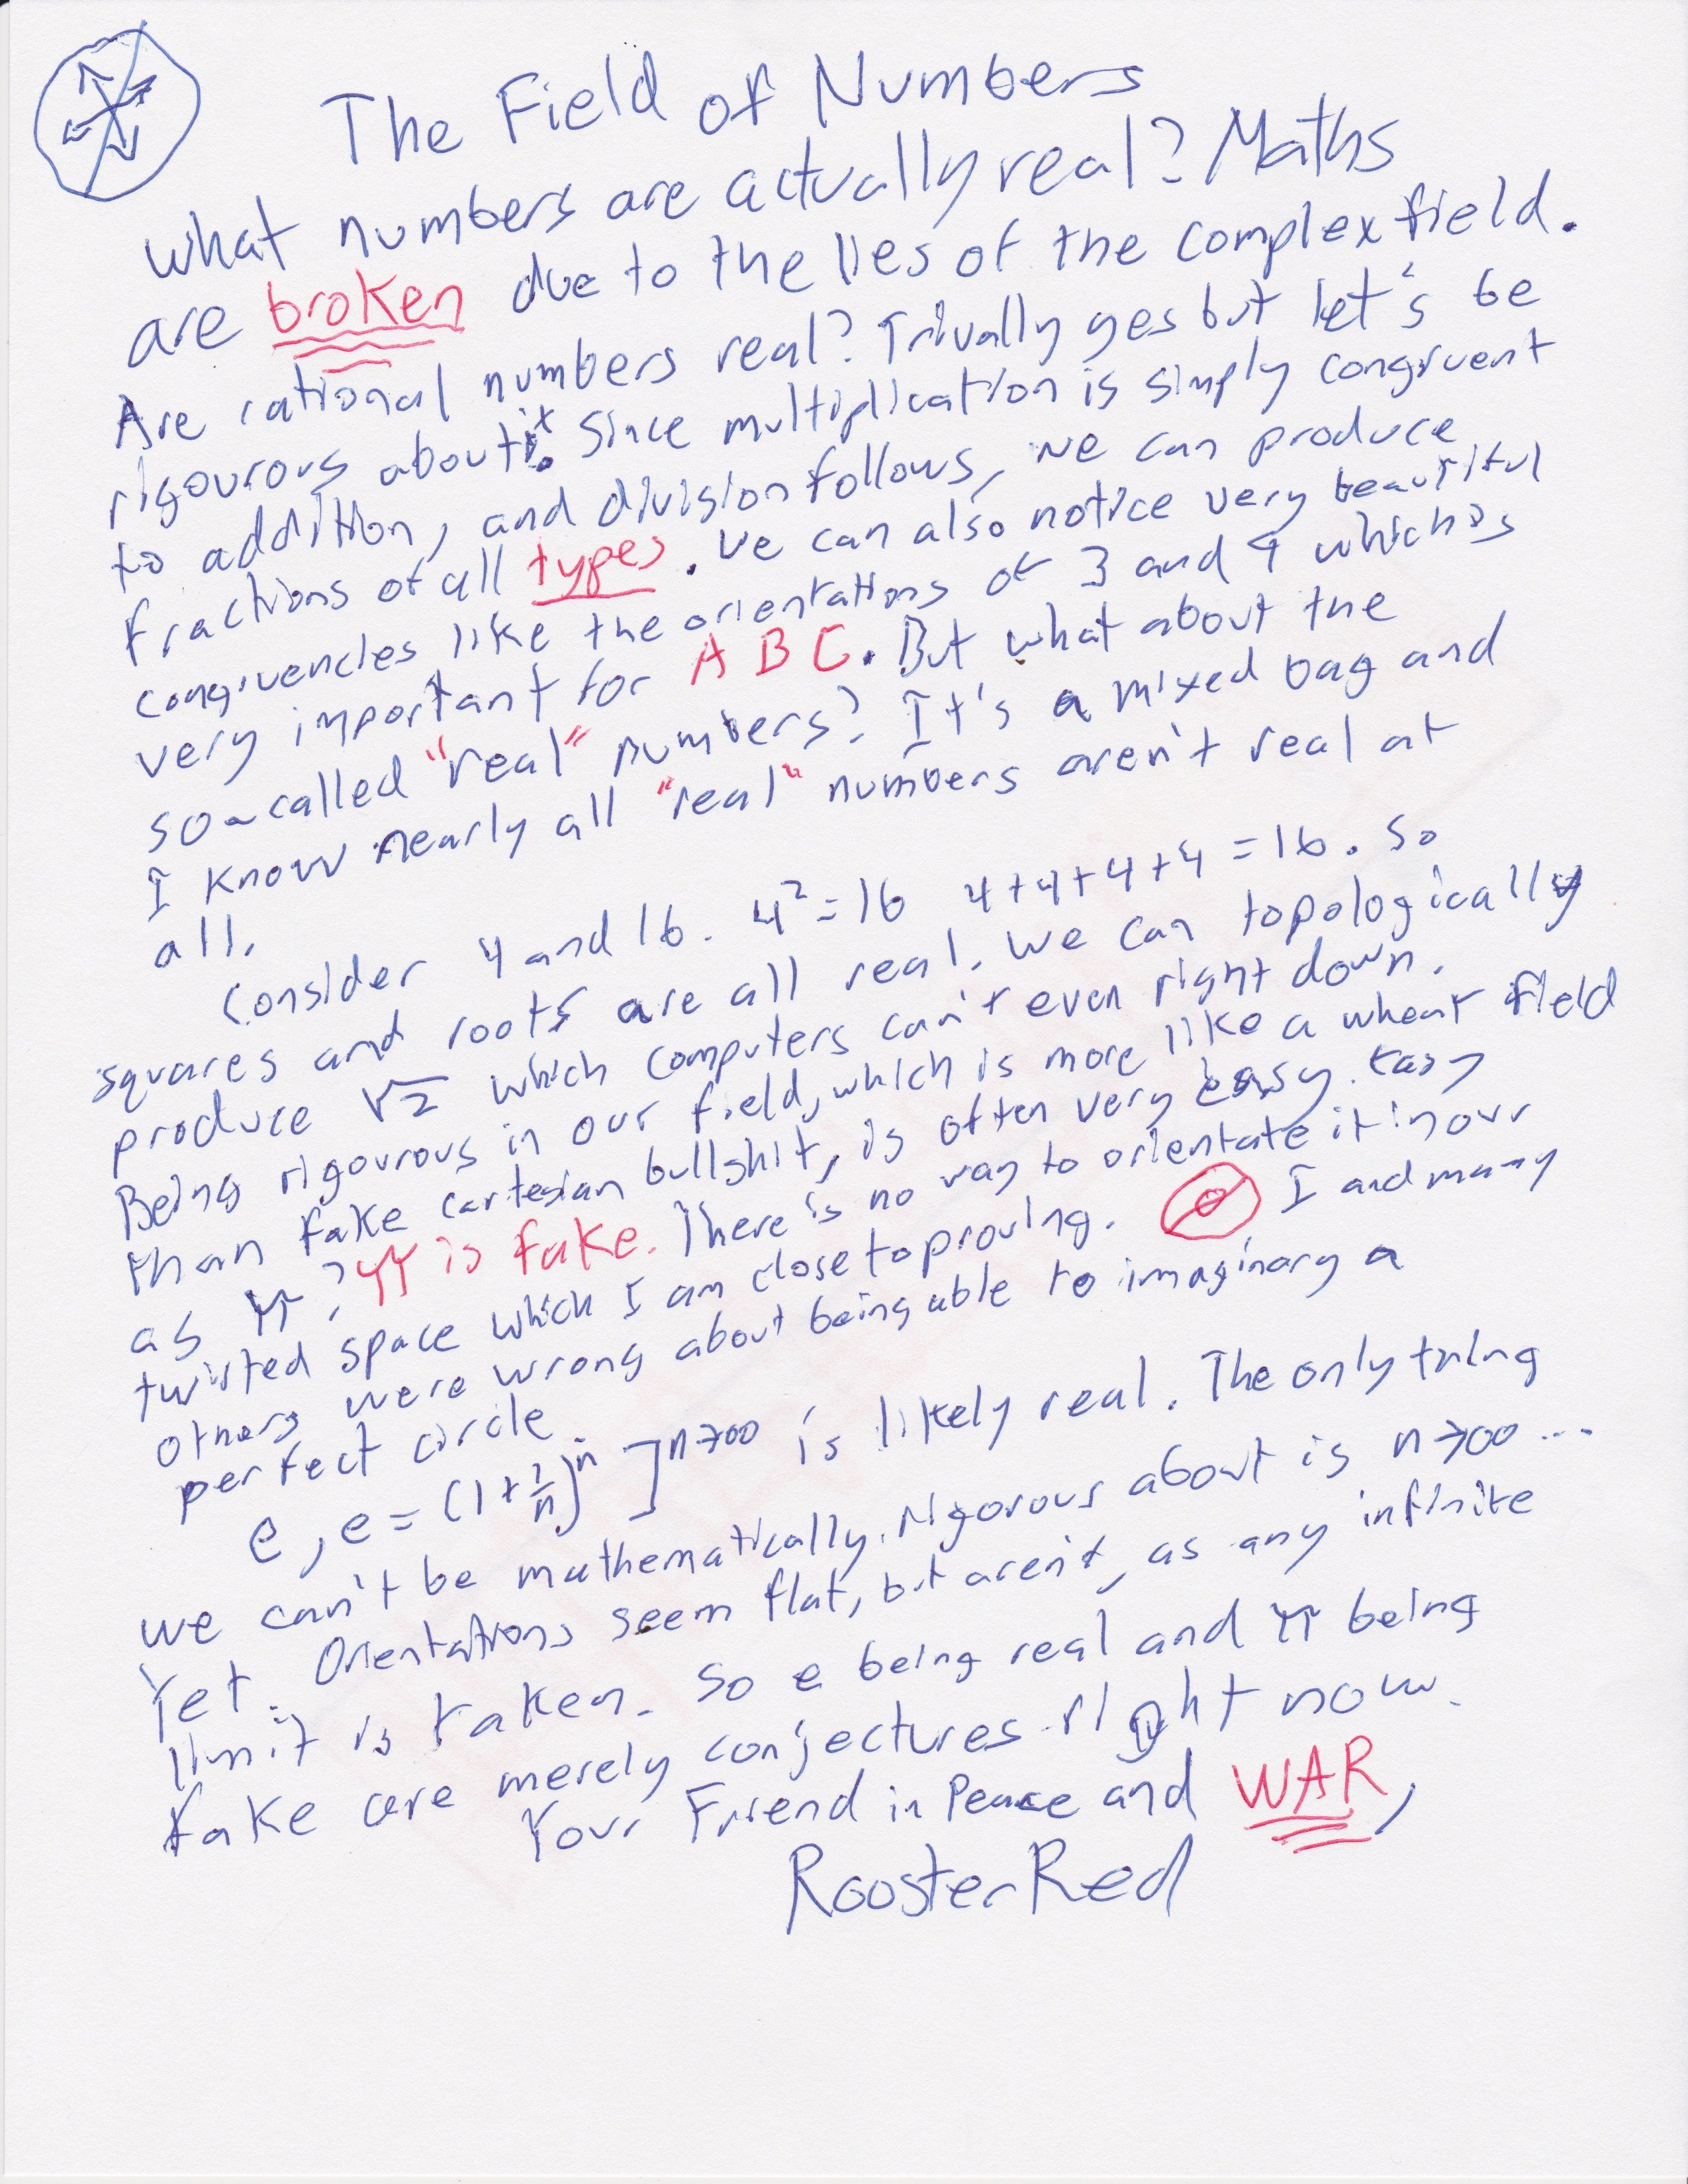 The Field of Numbers
What numbers are actually real? Maths
are broken due to the lies of the complex field.
Are rational numbers real? Trivally yes but let's be
rigourous about it. Since multiplication is simply congruent
to addition, and division follows, we can produce
fractions of all types. We can also notice very beautiful
congruencies like the orientations of 3 and 4 which is
very important for A B C. But what about the
so-called "real" numbers? It's a mixed bag and
I know nearly all "real" numbers aren't real at
all.
Consider 4 and 16. 4² = 16 4+4+4+4 = 16. So
squares and roots are all real. We can topologically
produce √2 which computers can't even right down.
Being rigourous in our field, which is more like a wheat field
than fake cartesian bullshit, is often very easy. Easy
as π? π is fake. There is no way to orientate it in our
twisted space which I am close to proving. I and many
others were wrong about being able to imaginary a
perfect circle.
e, e = (1+1/n)^n ]^n→∞ is likely real. The only thing
we can't be mathematically rigorous about is n→∞ ...
Yet. Orientations seem flat, but aren't, as any infinite
limit is taken. So e being real and π being
fake are merely conjectures right now.
Your Friend in Peace and WAR,
RoosterRed